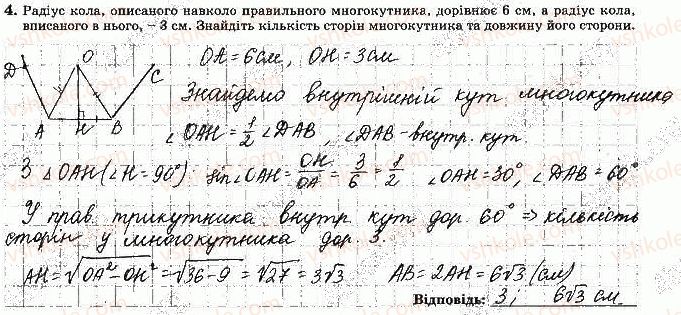 4. Радіус кола, описаного навколо правильного многокутника, дорівнює 6 см, а радіус кола,
вписаного в нього, – 3 см. Знайдіть кількість сторін многокутника та довжину його сторони.
D O C
A H B
OA = 6 см, OH = 3 см
Знайдемо внутрішній кут многокутника
∠OAH = 1/2 ∠DAB, ∠DAB - внутр. кут.
З △OAH (∠H = 90°): sin∠OAH = OH/OA = 3/6 = 1/2 ∠OAH = 30°, ∠DAB = 60°
У прав. трикутника внутр. кут дор. 60° ⇒ кількість
сторін у многокутника дор. 3.
AH = √(OA² - OH²) = √(36 - 9) = √27 = 3√3 AB = 2AH = 6√3 (см)
Відповідь: 3; 6√3 см